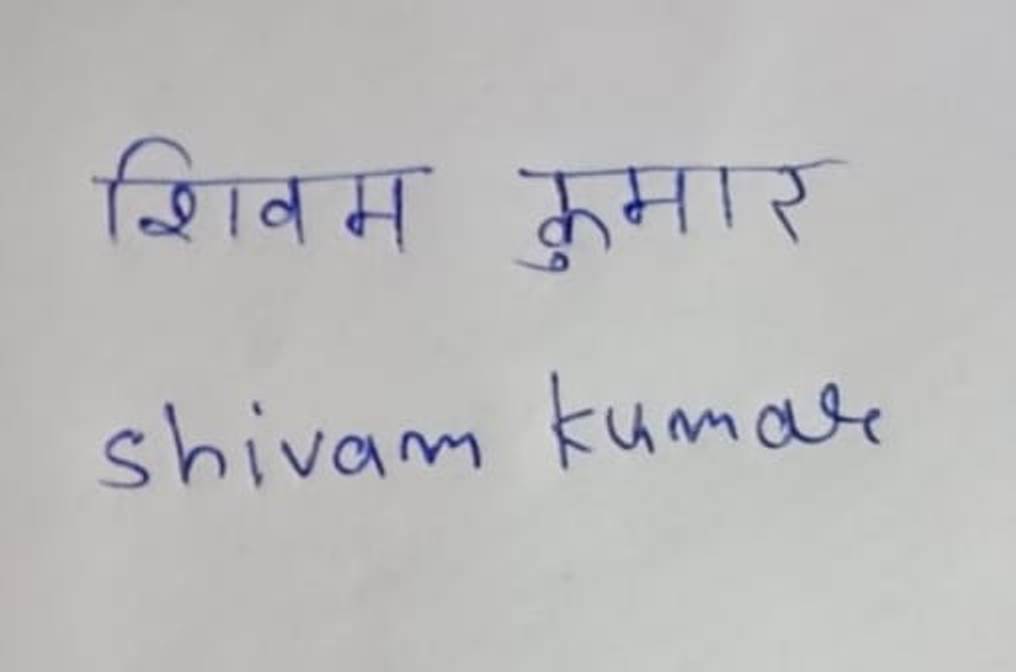 शिवम कुमार
shivam kumar